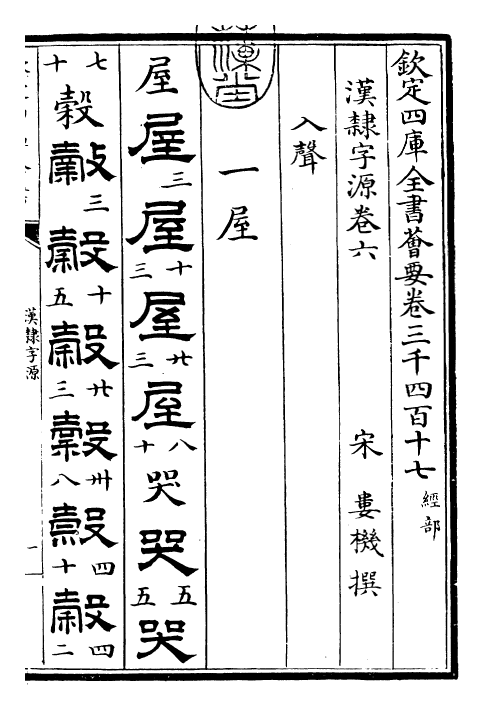 欽定四庫全書薈要卷三千四百十七 經部
漢隸字源卷六 宋 婁機撰
入聲
一屋
屋 屋 三 屋 十三 屋 廿三 屋 八十 哭 哭 五五 哭
七十 穀 穀 三 穀 十五 穀 廿三 穀 卅八 穀 四十 穀 四二
漢隸字源
一